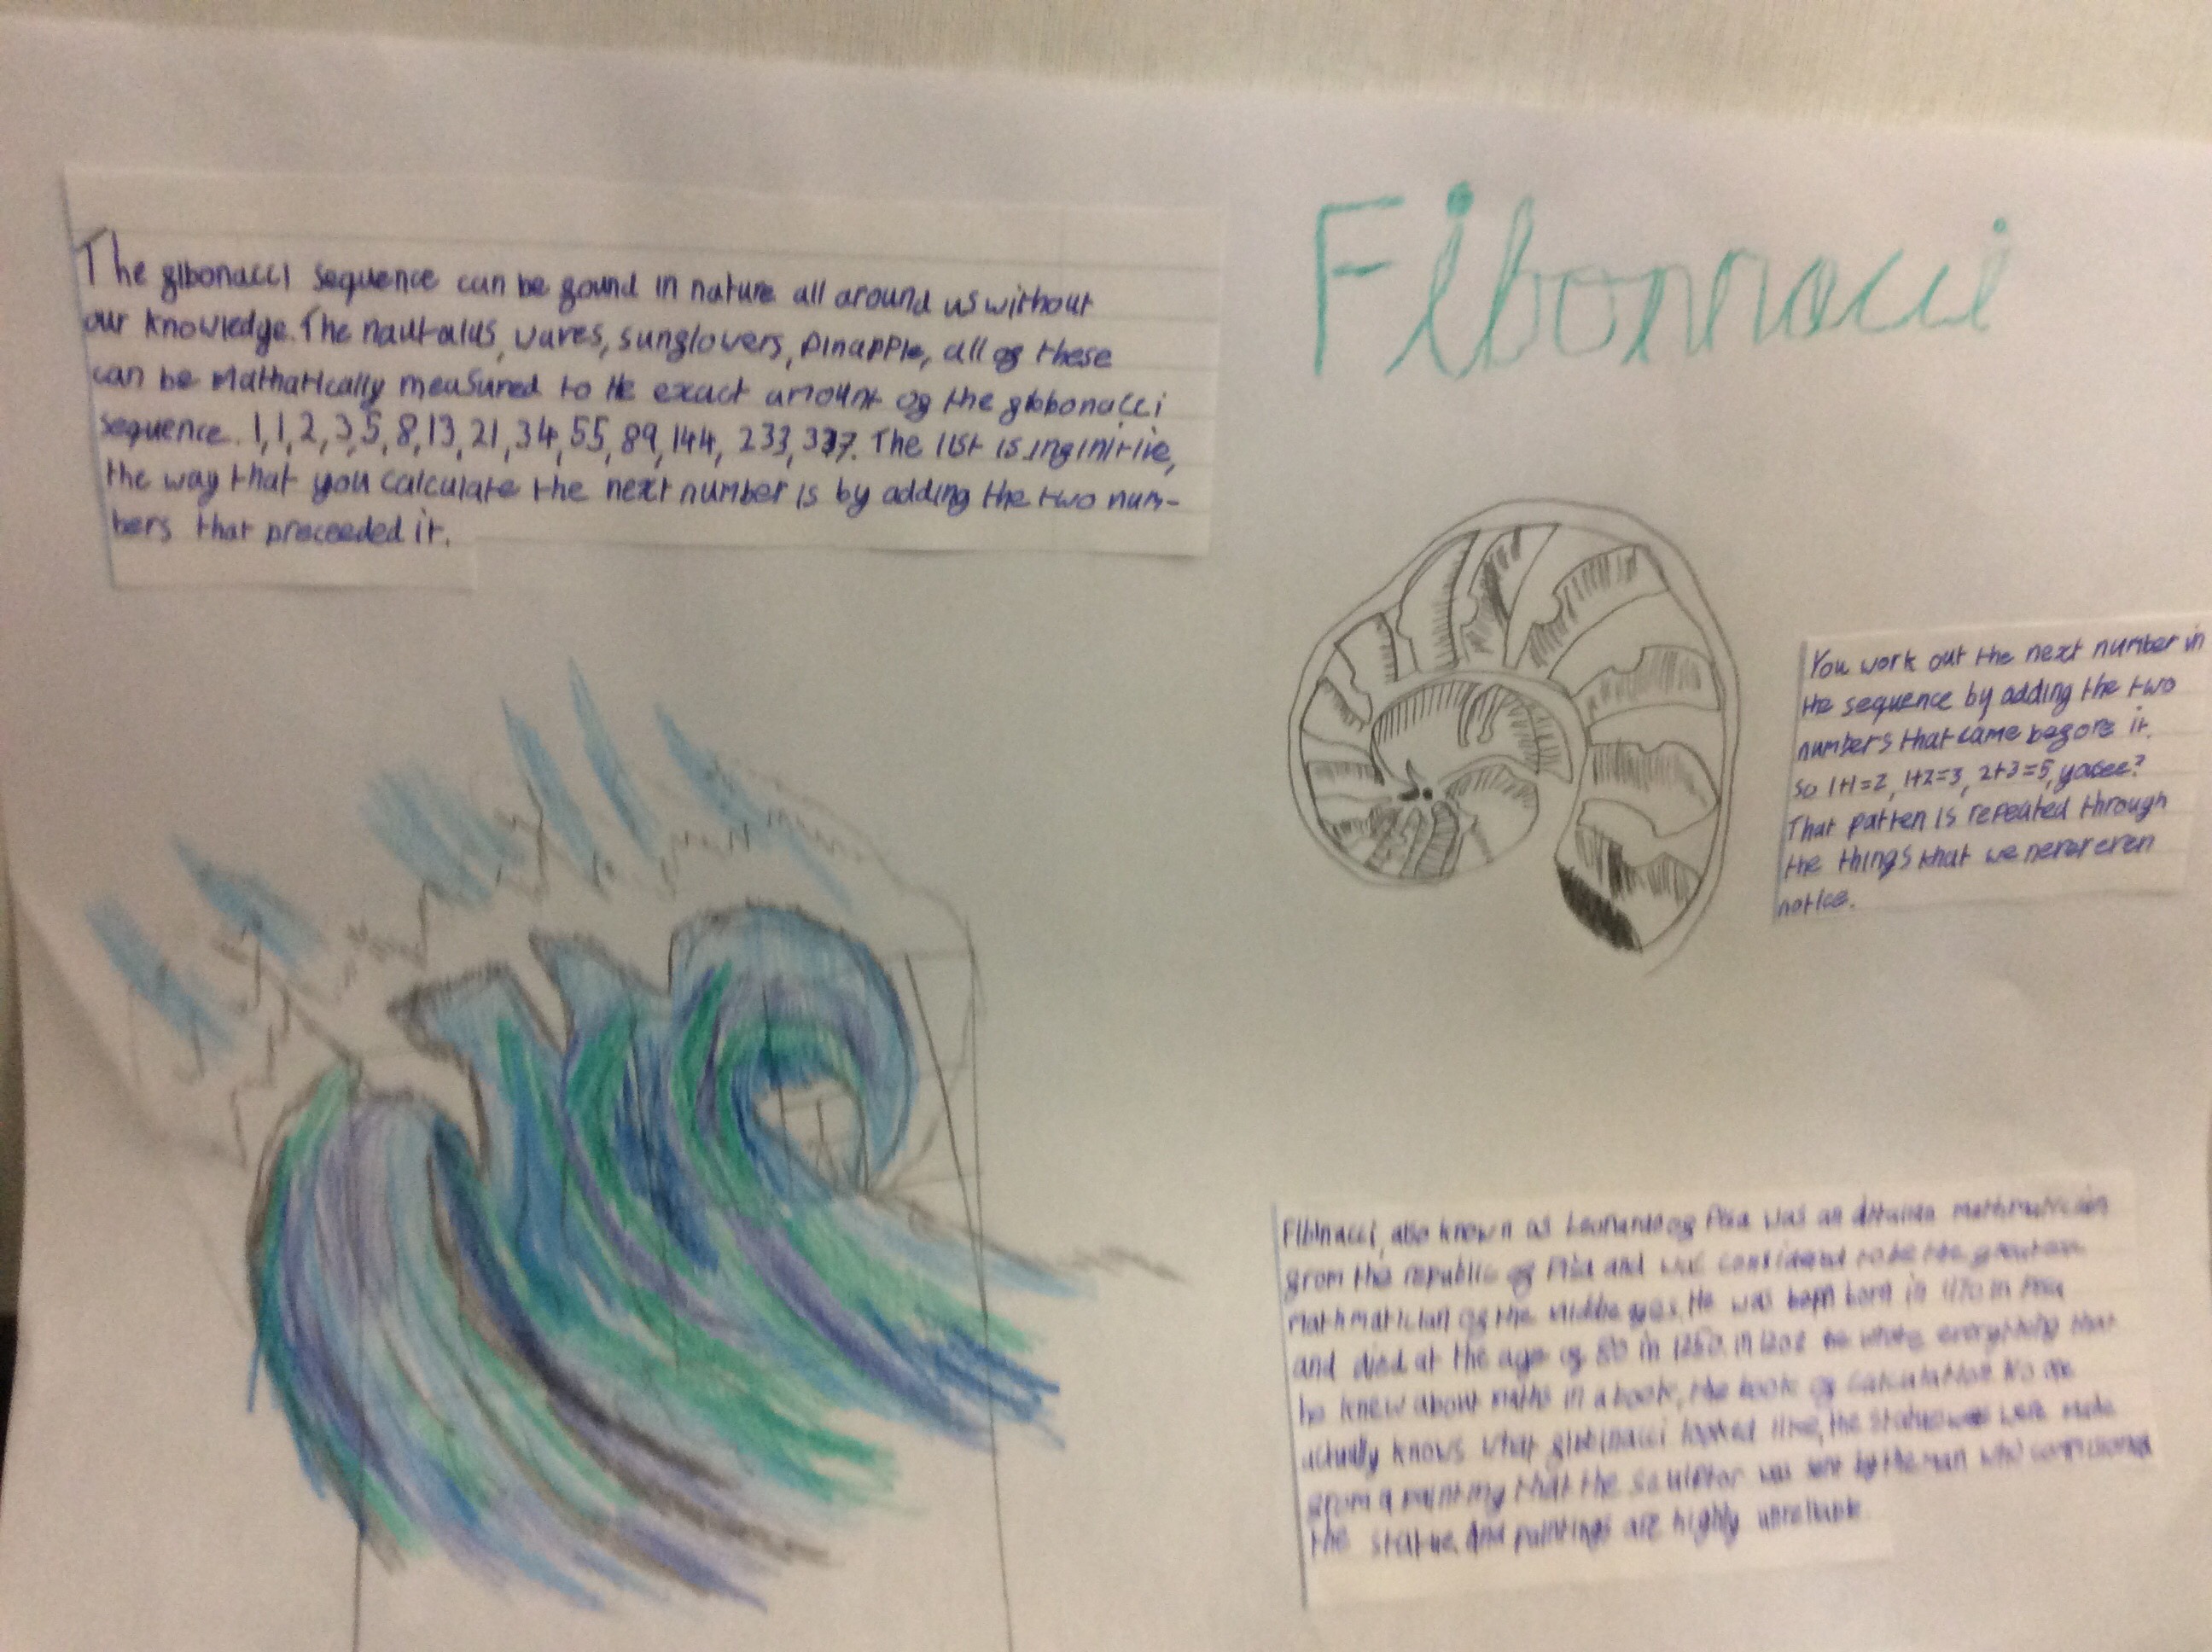 The fibonacci sequence can be found in nature all around us without
our knowledge. The nautalus, waves, sunflowers, pinapple, all of these
can be mathatically measured to the exact amount of the fibbonacci
sequence. 1,1,2,3,5,8,13,21,34,55,89,144, 233,377. The list is infinitiie,
the way that you calculate the next number is by adding the two num-
bers that proceeded it.
Fibonnaci
You work out the next number in
the sequence by adding the two
numbers that came before it.
So 1+1=2, 1+2=3, 2+3=5, yousee?
That patten is repeated through
the things that we never even
notice.
Fibinacci, also known as Leonardo of Pisa was an Italian mathmatician
from the republic of Pisa and was considerd to be the greatest
mathmatician of the middle ages. He was born in 1170 in Pisa
and died at the age of 80 in 1250. in 1202 he wrote everything that
he knew about maths in a book, the book of calculation. No one
actually knows what fibbinacci looked like, the statues were made
from a painting that the sculptor was sent by the man who
the statue. And paintings are highly unreliable.